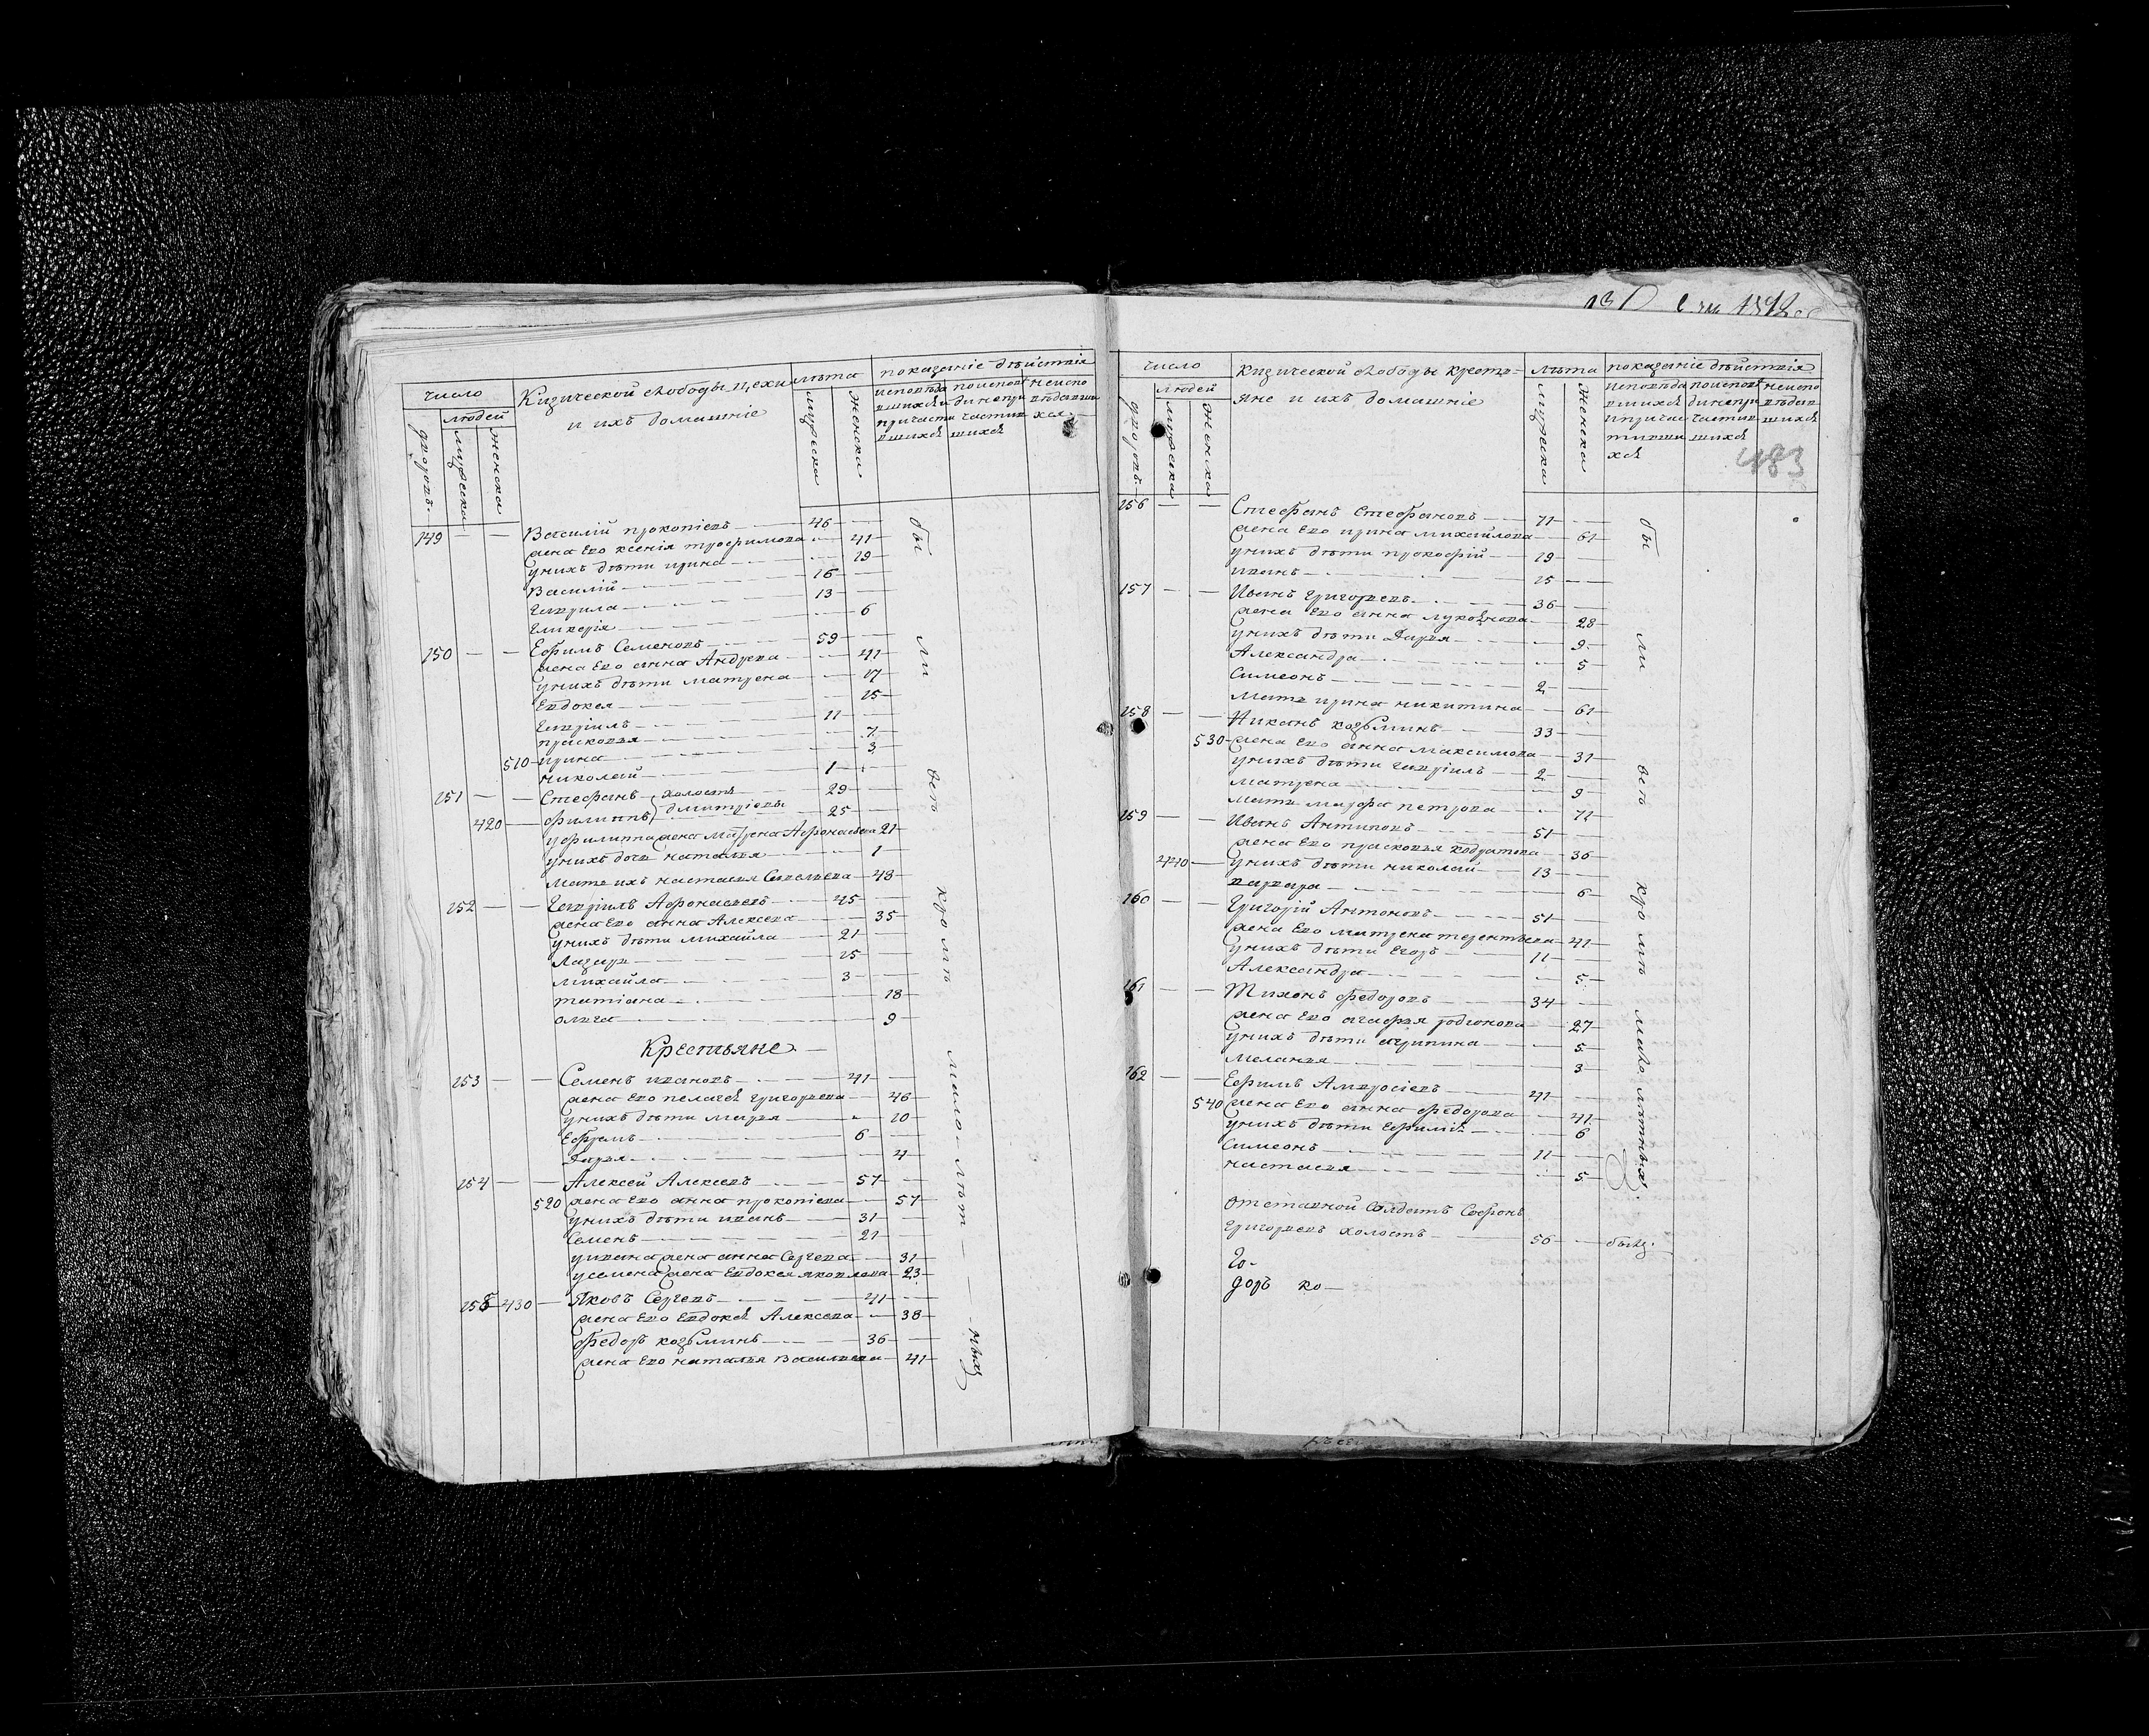 число
Кизической слободы цехи
лѣта
показаніе дѣйствія
людей
и ихъ домашніе
мужеска
женска
исповѣдавшихся и причастившихся
по исповѣди не причастившихся
не исповѣдавшихся
дворовъ
мужеска
женска
149 — — Василій Прокопіевъ — 46 —
жена Его Ксенія Трофимова — 41
у нихъ дѣти Ирина — 19
Василій — 16
Гаврила — 13
Гликерія — 6
150 — — Ефимъ Семеновъ — 59
жена Его Анна Андрева — 41
у нихъ дѣти Матрена — 17
Евдокея — 15
Гавріилъ — 11
Прасковья — 7
510 Ирина — 3
Николай — 1
151 — — Стефанъ холостъ — 29
420 — Филиппъ Дмитріевы — 25
у Филиппа жена Матрена Афонасьева 21
у нихъ дочь Наталья — 1
Мать ихъ Настасья Савельева — 48
152 — — Гавріилъ Афонасьевъ — 45
жена Его Анна Алексева — 35
у нихъ дѣти Михайла — 21
Лазарь — 15
Михайла — 3
Татіана — 18
Олга — 9
Крестьяне
153 — — Семенъ Ивановъ — 41
жена Его Пелагея Григорьева — 46
у нихъ дѣти Марья — 10
Ефремъ — 6
Дарья — 4
154 — — Алексей Алексевъ — 57
520 жена Его Анна Прокопіева — 57
у нихъ дѣти Иванъ — 31
Семенъ — 21
у Ивана жена Анна Сергева — 31
у Семена жена Евдокея Яковлева — 23
155 430 — Яковъ Сергевъ — 41
жена Его Евдокея Алексева — 38
Федоръ Козьминъ — 36
жена Его Наталья Васильева — 41
бы ли всѣ кромѣ мало лѣт ныхъ
483
число
Кизической слободы крестьяне и ихъ домашніе
лѣта
показаніе дѣйствія
людей
дворовъ
мужеска
женска
мужеска
женска
исповѣдавшихся и причастившихся
по исповѣди не причастившихся
не исповѣдавшихся
156 — — Стефанъ Стефановъ — 71
жена Его Ирина Михайлова — 61
у нихъ дѣти Прокофій — 19
Иванъ — 15
157 — — Иванъ Григорьевъ — 36
жена Его Анна Лукоянова — 28
у нихъ дѣти Дарья — 9
Александра — 5
Симеонъ — 2
Мать Ирина Никитина — 61
158 — — Никанъ Козьминъ — 33
530 жена Его Анна Максимова — 31
у нихъ дѣти Гавріилъ — 2
Матрена — 9
Мать Марфа Петрова — 71
159 — — Иванъ Антиповъ — 51
жена Его Прасковья Кодратова — 36
440 — у нихъ дѣти Николай — 13
Варвара — 6
160 — — Григорій Антоновъ — 51
жена Его Матрена Терентьева — 41
у нихъ дѣти Егоръ — 11
Александра — 5
161 — — Тихонъ Федоровъ — 34
жена Его Агафья Родионова — 27
у нихъ дѣти Агрипина — 5
Меланья — 3
162 — — Ефимъ Амвросіевъ — 41
540 жена Его Анна Федорова — 41
у нихъ дѣти Ефимія — 6
Симеонъ — 11
Настасья — 5
Отставной Солдатъ Софонъ
Григорьевъ холостъ — 56 — былъ.
бы ли всѣ кромѣ мало лѣтныхъ.